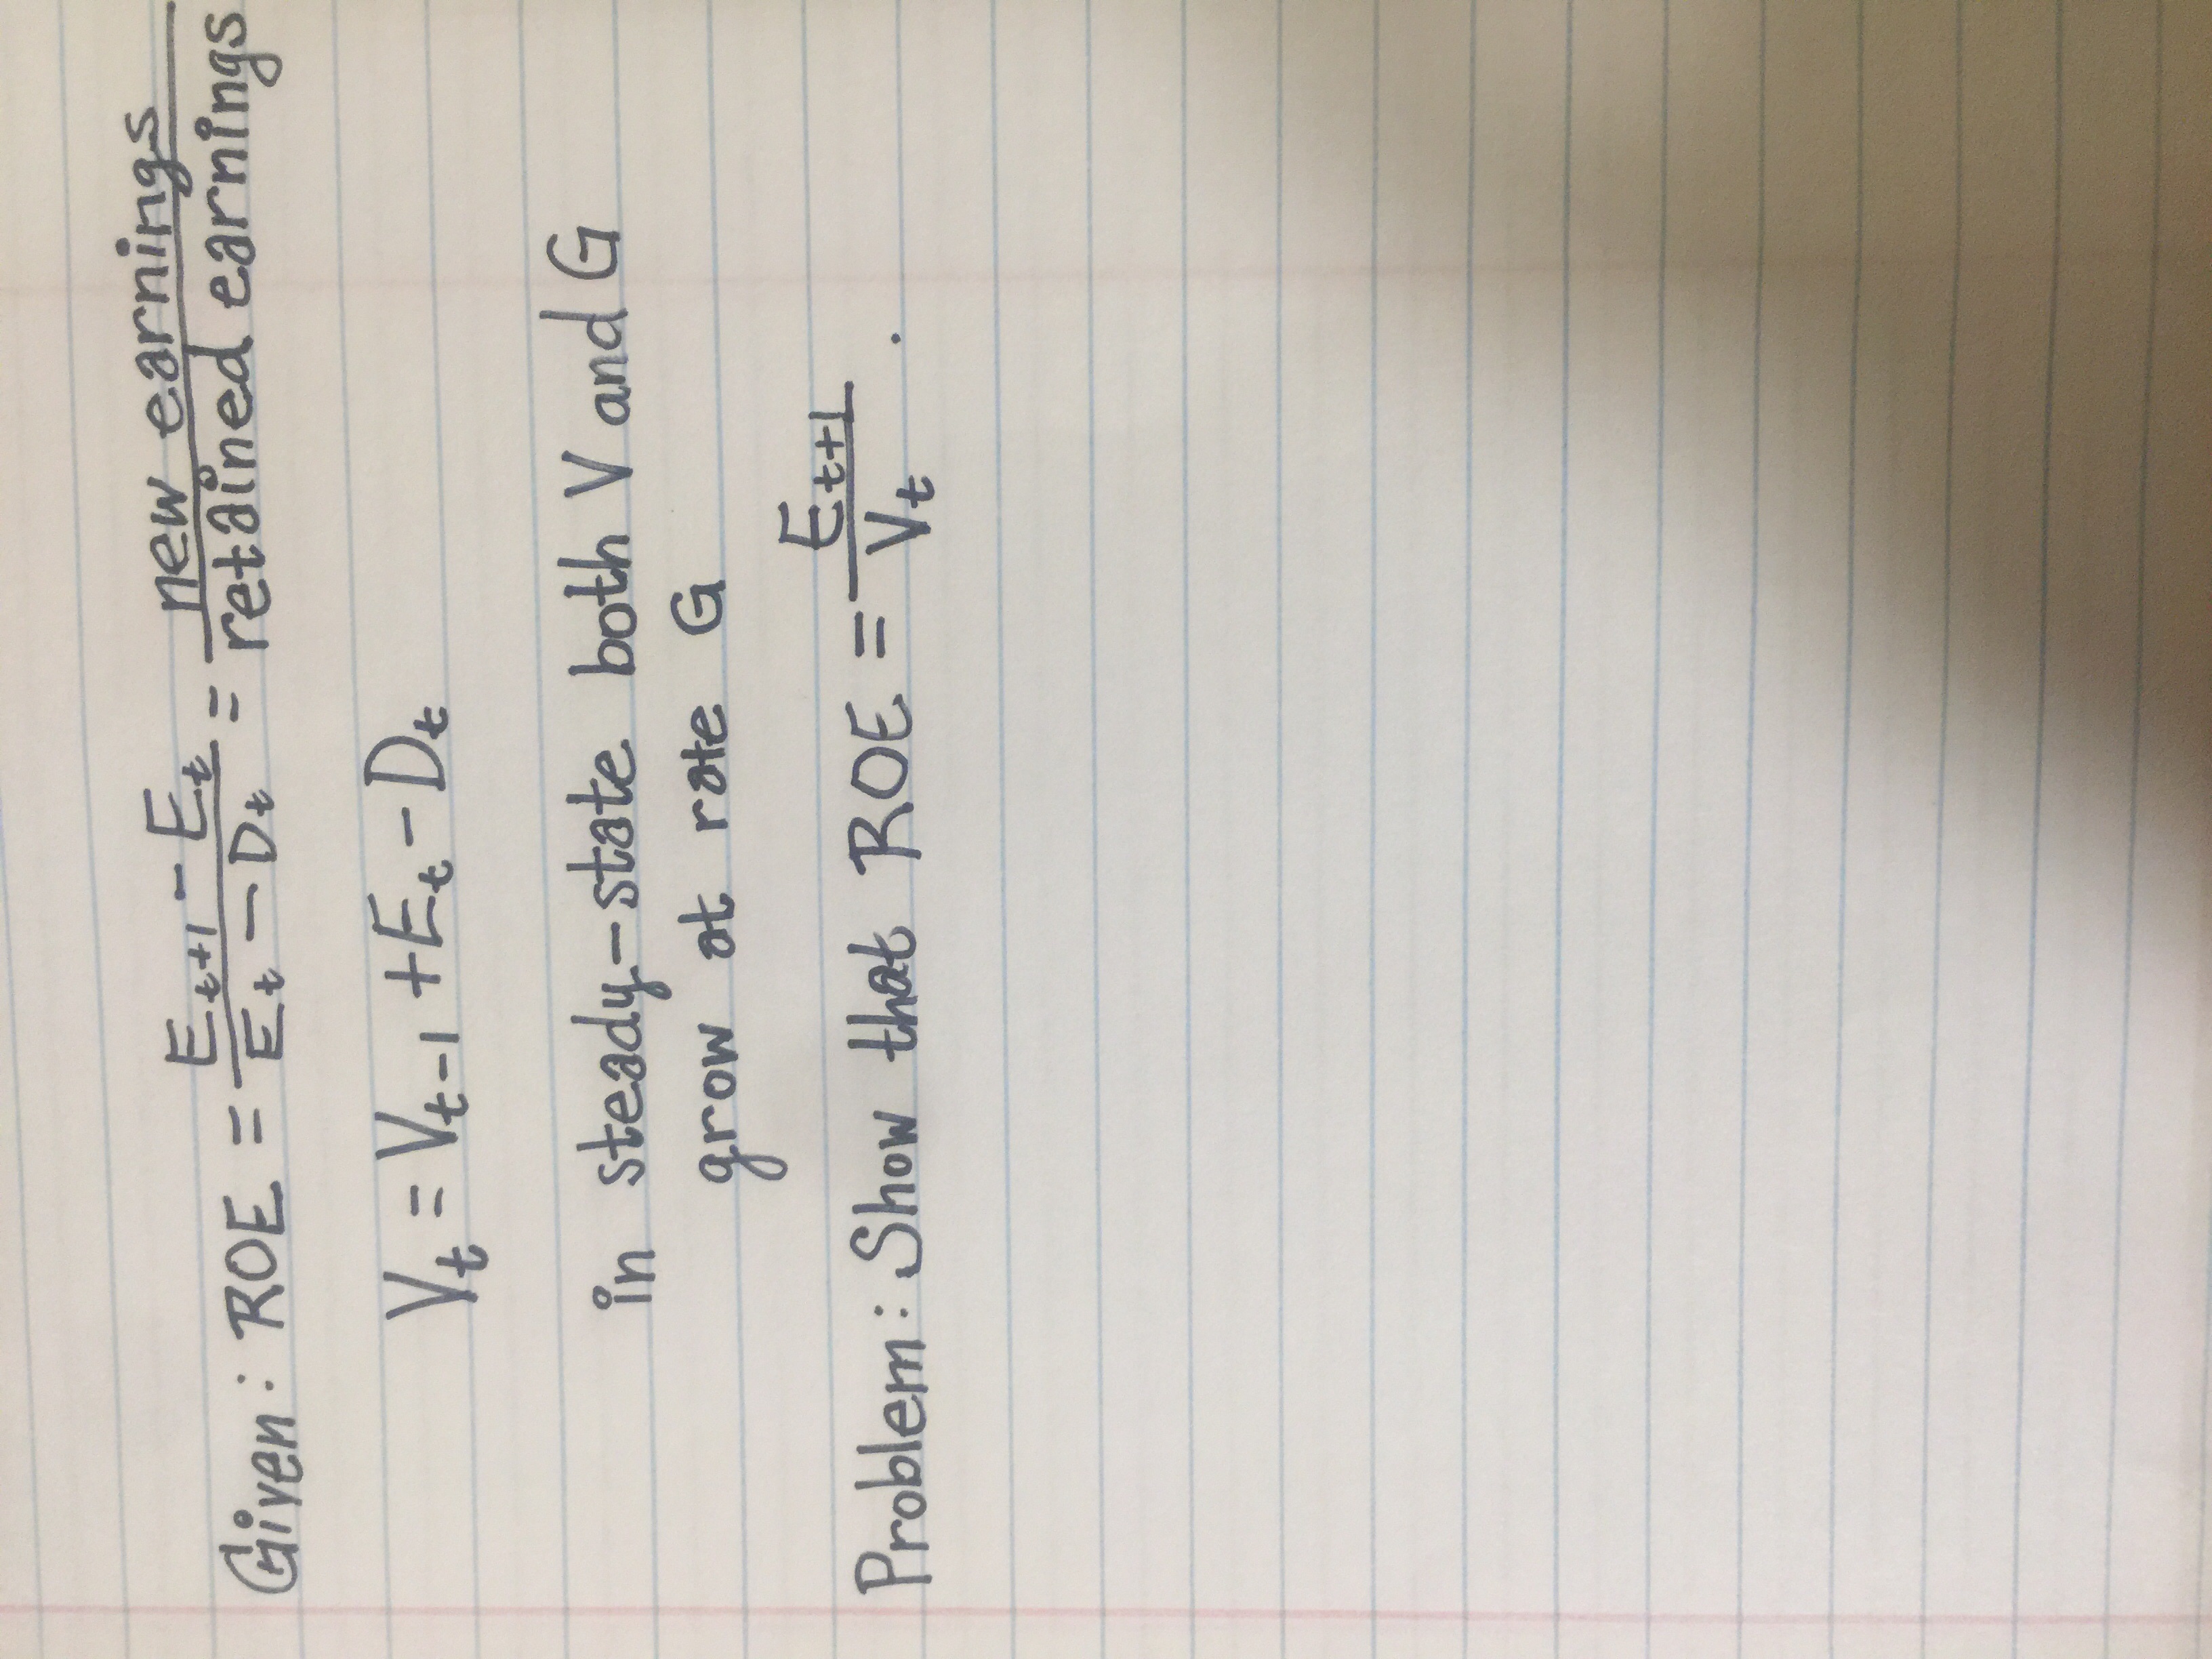 Given: ROE = \frac{E_{t+1} - E_t}{E_t - D_t} = \frac{new earnings}{retained earnings}
V_t = V_{t-1} + E_t - D_t
in steady-state both V and G
grow at rate G
Problem: Show that ROE = \frac{E_{t+1}}{V_t} .